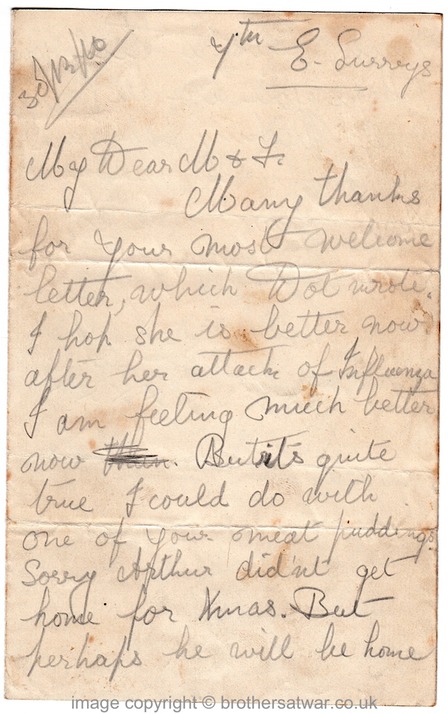 30/12/16
7th E. Surreys
My Dear M & F.
Many thanks
for your most welcome
letter, which Dot wrote.
I hop she is better now
after her attack of Influenza
I am feeling much better
now . But its quite
true I could do with
one of your meat puddings.
Sorry Arthur did'nt get
home for Xmas. But
perhaps he will be home
image copyright © brothersatwar.co.uk